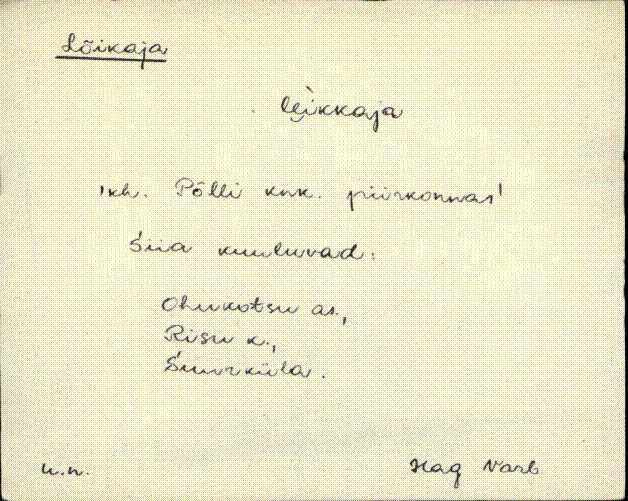 Lõikaja
le̮i̬kkaja
'kh. Põlli knk. piirkonnas'
Siia kuuluvad:
Ohukotsu as.,
Risu k.,
Suurküla.
u.n. Hag Varb